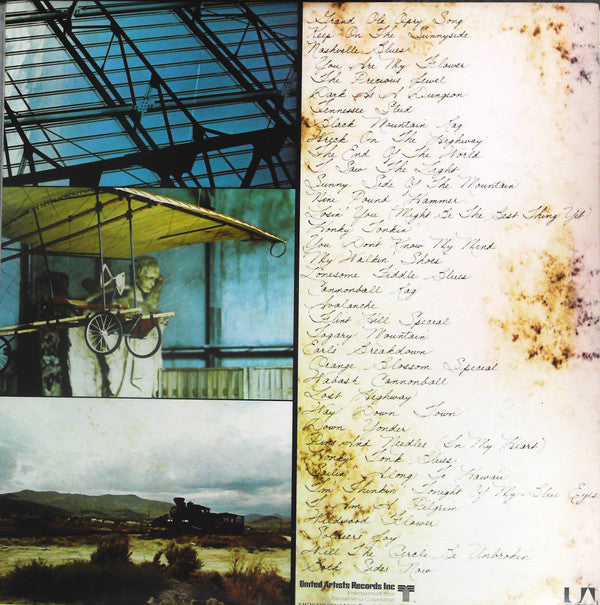 Grand Ole Opry Song
Keep On The Sunnyside
Nashville Blues
You Are My Flower
The Precious Jewel
Dark As A Dungeon
Tennessee Stud
Black Mountain Rag
Wreck On The Highway
The End Of The World
I Saw The Light
Sunny Side Of The Mountain
Nine Pound Hammer
Losin You (Might Be The Best Thing Yet)
Honky Tonkin
You Dont Know My Mind
My Walkin Shoes
Lonesome Fiddle Blues
Cannonball Rag
Avalanche
Flint Hill Special
Togary Mountain
Earls Breakdown
Orange Blossom Special
Wabash Cannonball
Lost Highway
Way Down Town
Down Yonder
Pins And Needles (In My Heart)
Honky Tonk Blues
Sailin Along To Hawaii
Im Thinkin Tonight Of My Blue Eyes
I Am A Pilgrim
Wildwood Flower
Soldiers Joy
Will The Circle Be Unbrokin
Both Sides Now
United Artists Records Inc
Entertainment from
Transamerica Corporation